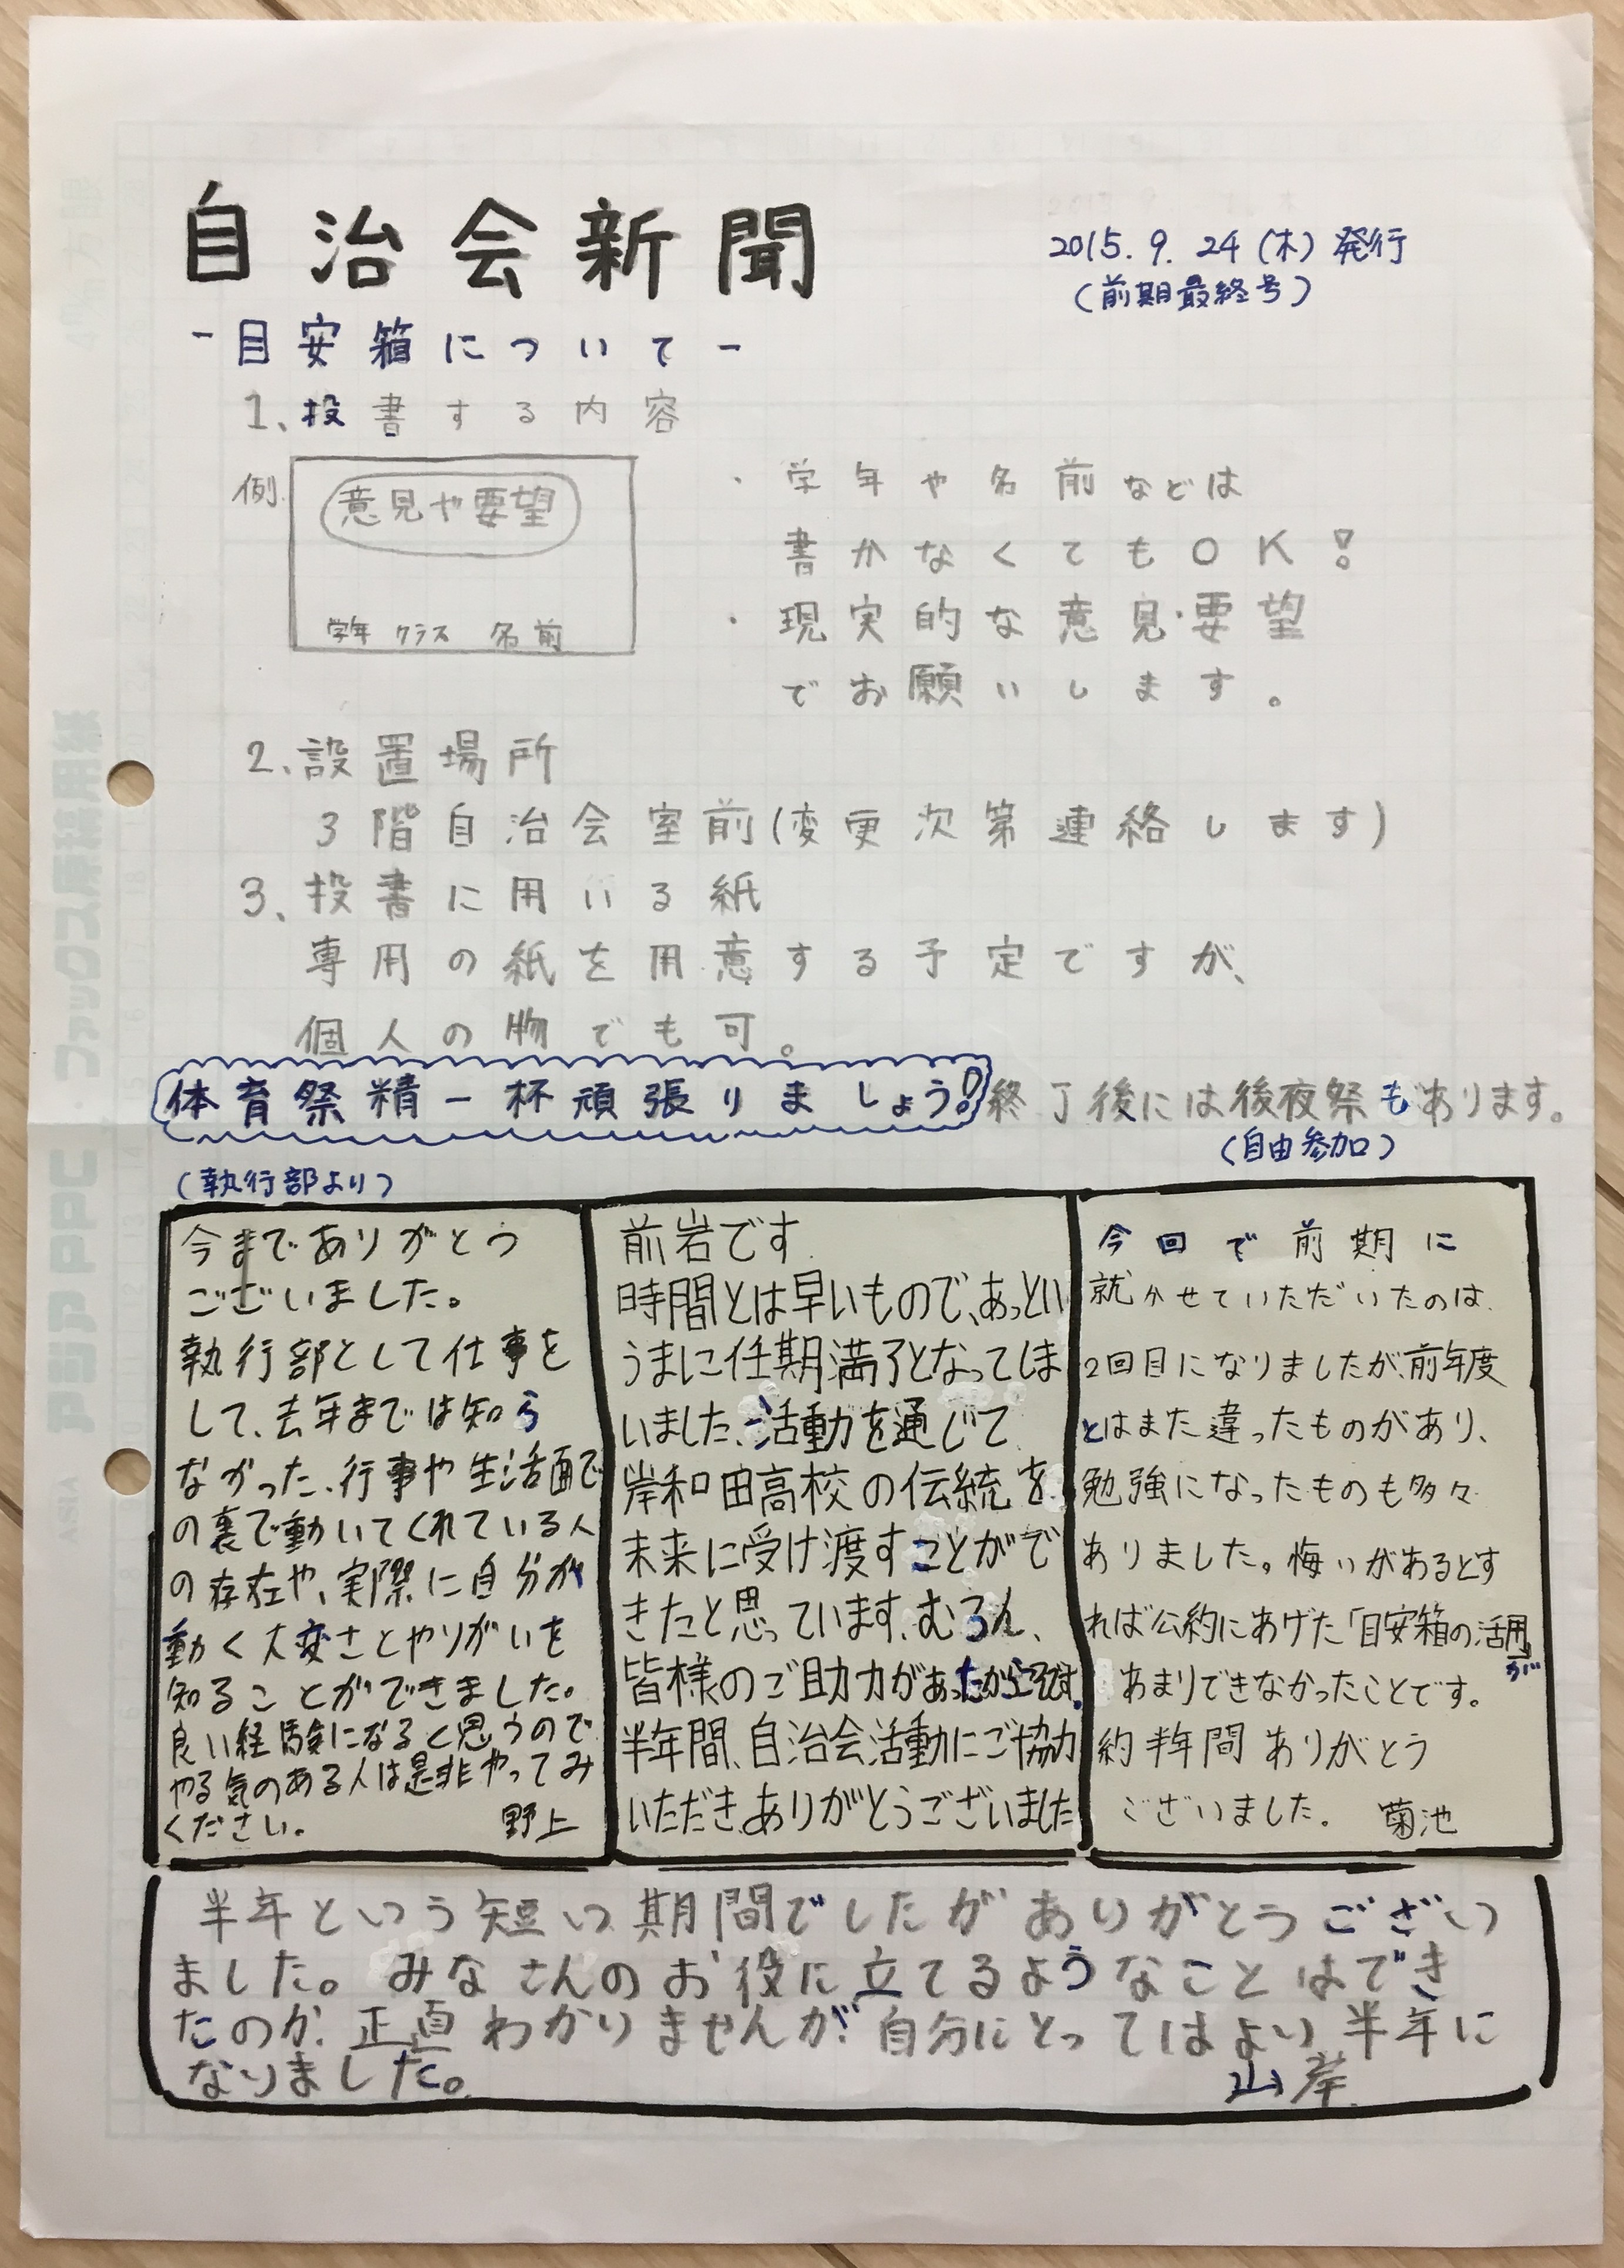 自治会新聞
2015.9.24(木)発行
(前期最終号)
-目安箱について-
1、投書する内容
例.
意見や要望
学年 クラス 名前
・学年や名前などは
書かなくてもOK!
・現実的な意見・要望
でお願いします。
2、設置場所
3階自治会室前(変更次第連絡します)
3、投書に用いる紙
専用の紙を用意する予定ですが、
個人の物でも可。
体育祭精一杯頑張りましょう!終了後には後夜祭もあります。
(自由参加)
(執行部より)
今までありがとう
ございました。
執行部として仕事を
して、去年までは知ら
なかった、行事や生活面で
の裏で動いてくれている人
の存在や、実際に自分が
動く大変さとやりがいを
知ることができました。
良い経験になると思うので
やる気のある人は是非やってみ
ください。 野上
前岩です
時間とは早いもので、あっとい
うまに任期満了となってしま
いました、活動を通じて
岸和田高校の伝統を
未来に受け渡すことがで
きたと思っています、むろん、
皆様のご助力があったからこそです.
半年間、自治会活動にご協力
いただき、ありがとうございました
今回で前期に
就かせていただいたのは
2回目になりましたが、前年度
とはまた違ったものがあり、
勉強になったものも多々
ありました。悔いがあるとす
れば公約にあげた「目安箱の活用」が
あまりできなかったことです。
約半年間 ありがとう
ございました. 菊池
半年という短い期間でしたがありがとうござい
ました。みなさんのお役に立てるようなことはでき
たのか、正直わかりませんが自分にとってはよい半年に
なりました。 山岸
アジアPPC・ファックス原稿用紙
ASIA